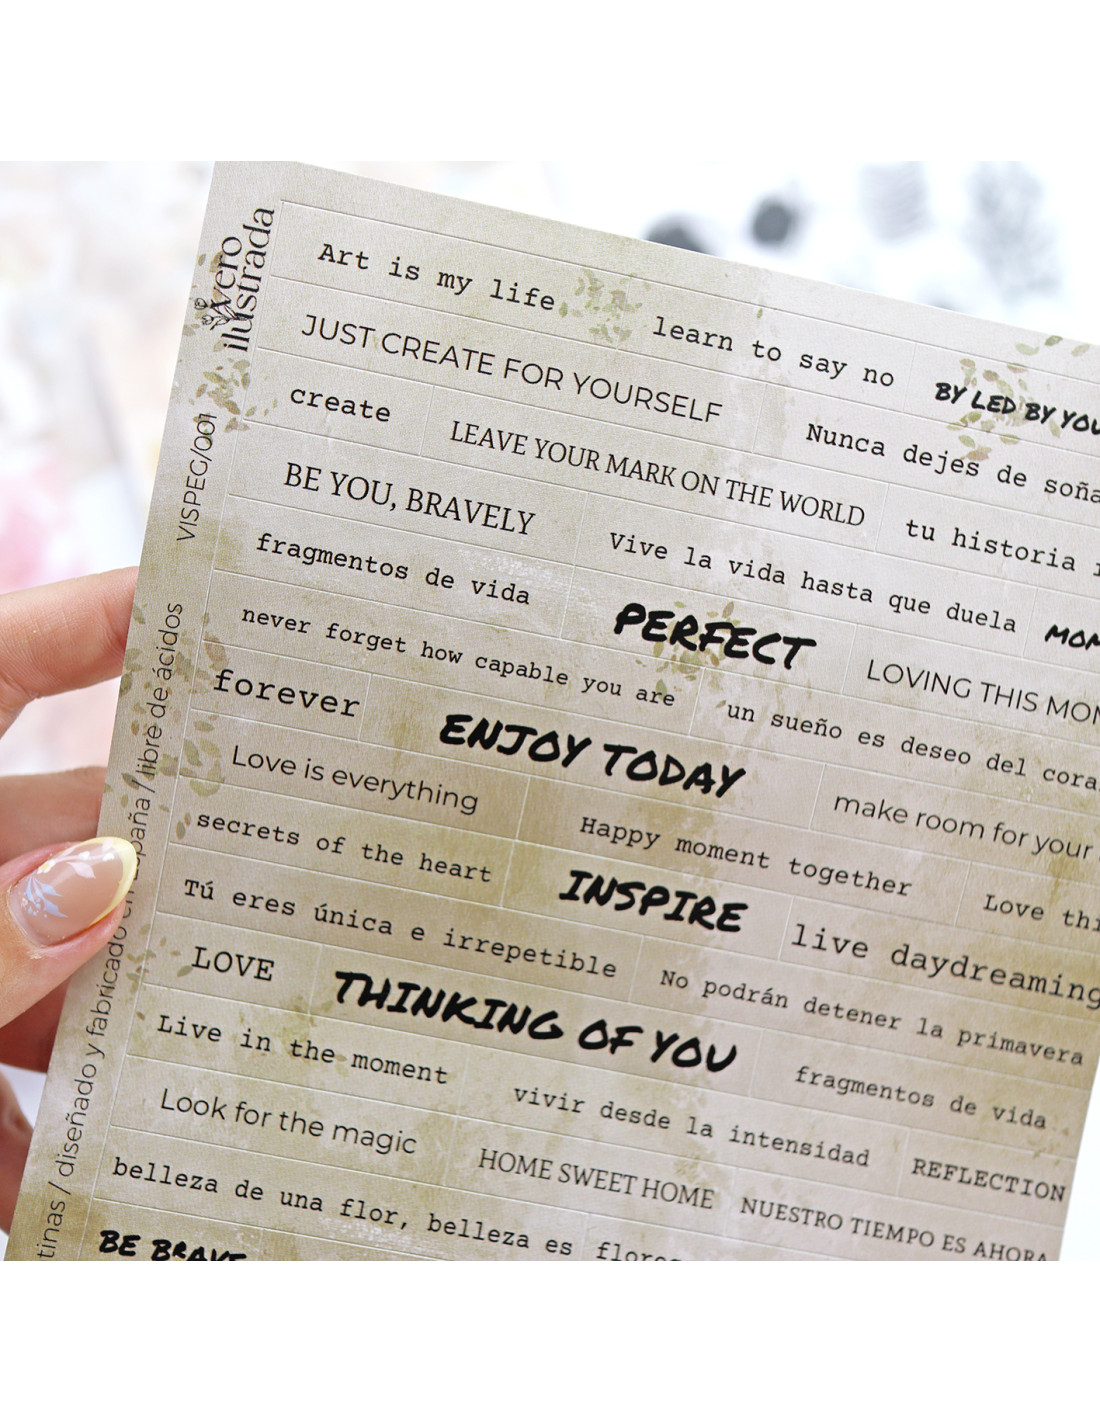 vero
ilustrada
VISPEG/001
tinas / diseñado y fabricado en España / libre de ácidos
Art is my life learn to say no BY LED BY YOU
JUST CREATE FOR YOURSELF Nunca dejes de soña
create LEAVE YOUR MARK ON THE WORLD tu historia
BE YOU, BRAVELY Vive la vida hasta que duela MOM
fragmentos de vida PERFECT LOVING THIS MOM
never forget how capable you are un sueño es deseo del cora
forever ENJOY TODAY make room for your
Love is everything Happy moment together Love thi
secrets of the heart INSPIRE live daydreaming
Tú eres única e irrepetible No podrán detener la primavera
LOVE THINKING OF YOU fragmentos de vida
Live in the moment vivir desde la intensidad REFLECTION
Look for the magic HOME SWEET HOME NUESTRO TIEMPO ES AHORA
belleza de una flor, belleza es flores
BE BRAVE